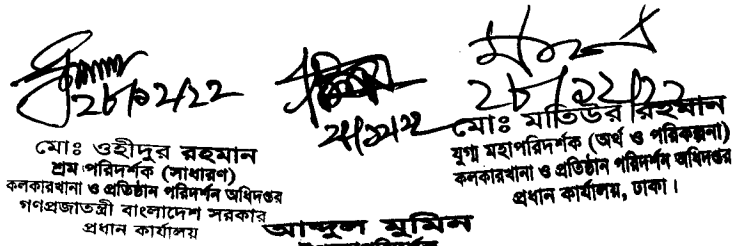 ২৮/১২/২২
২৮/১২/২২
মোঃ ওহীদুর রহমান
শ্রম পরিদর্শক (সাধারণ)
কলকারখানা ও প্রতিষ্ঠান পরিদর্শন অধিদপ্তর
গণপ্রজাতন্ত্রী বাংলাদেশ সরকার
প্রধান কার্যালয়
২৮/১২/২২
আব্দুল মুমিন
মোঃ মাতিউর রহমান
যুগ্ম মহাপরিদর্শক (অর্থ ও পরিকল্পনা)
কলকারখানা ও প্রতিষ্ঠান পরিদর্শন অধিদপ্তর
প্রধান কার্যালয়, ঢাকা।